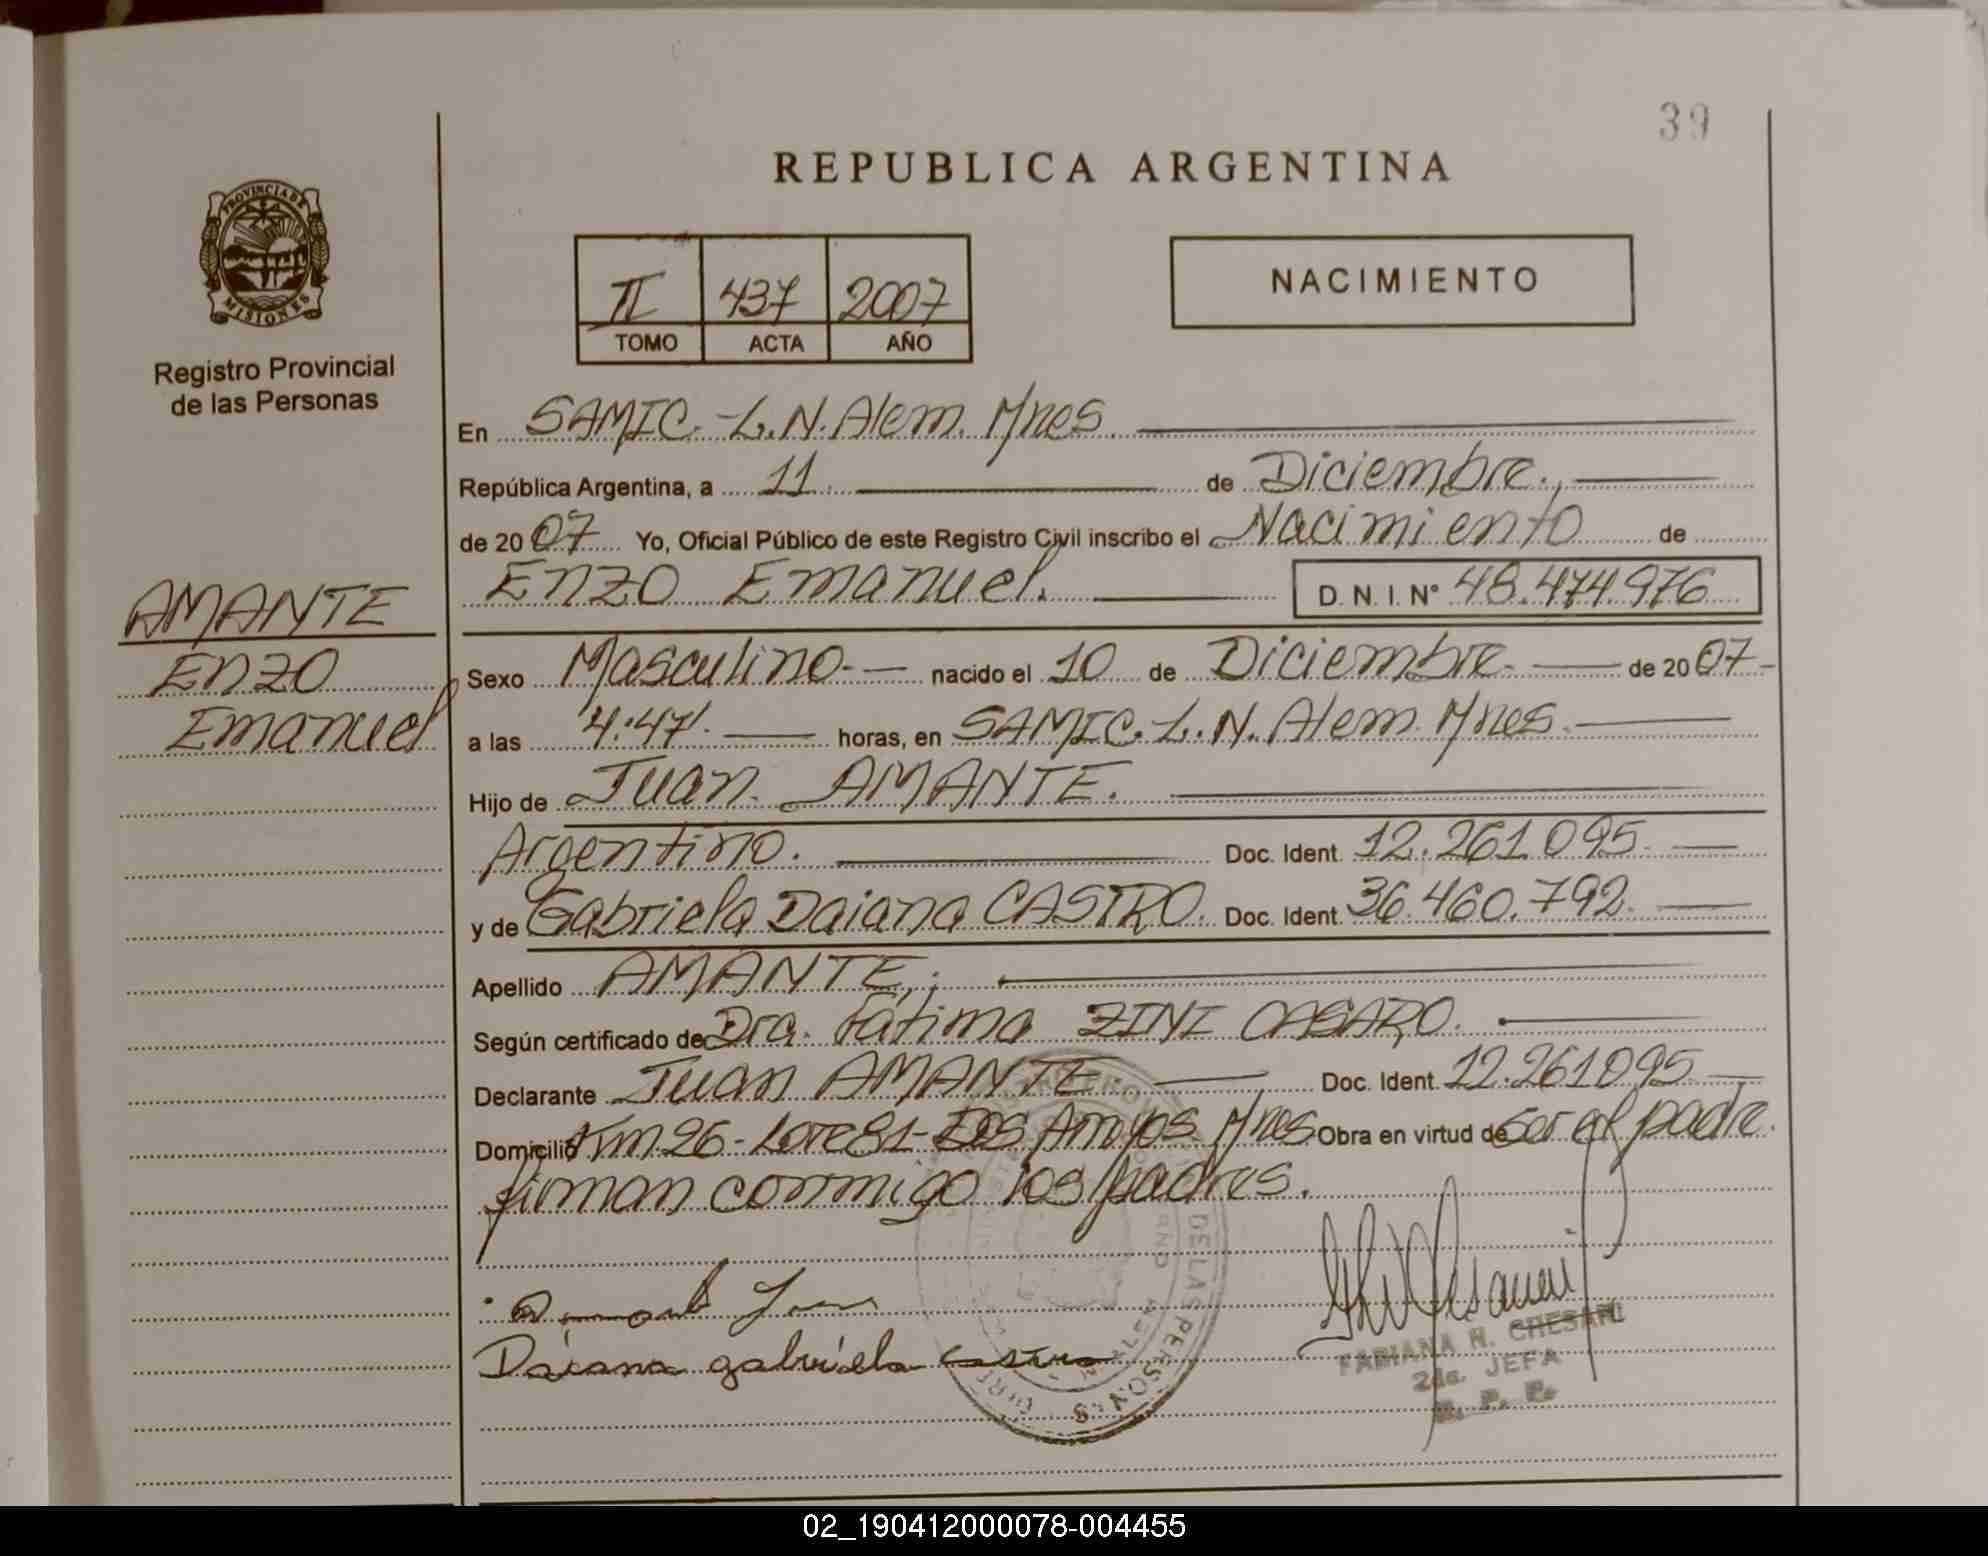 39
REPUBLICA ARGENTINA
PROVINCIA DE
MISIONES
Registro Provincial
de las Personas
II 437 2007
TOMO ACTA AÑO
NACIMIENTO
En SAMIC.-L.N.Alem. Mnes.
República Argentina, a 11 de Diciembre.,
de 2007 Yo, Oficial Público de este Registro Civil inscribo el Nacimiento de
ENZO Emanuel. D.N.I. Nº 48.474.976
AMANTE
ENZO
Emanuel
Sexo Masculino.- nacido el 10 de Diciembre. de 2007-
a las 4:47. horas, en SAMIC.-L.N.Alem. Mnes.
Hijo de Juan. AMANTE.
Argentino. Doc. Ident. 12.261.095.
y de Gabriela Daiana CASTRO. Doc. Ident. 36.460.792.
Apellido AMANTE,.
Según certificado de Dra. Fátima ZINI CASARO.
Declarante Juan AMANTE Doc. Ident. 12.261.095
Domicilio Km 26-Lote 81-Dos Arroyos. Mnes. Obra en virtud de ser el padre.
firman conmigo los padres.
Daiana gabriela castro
DE LAS PERSONAS
FABIANA R. CHESANI
2da. JEFA
R. P. P.
02_190412000078-004455